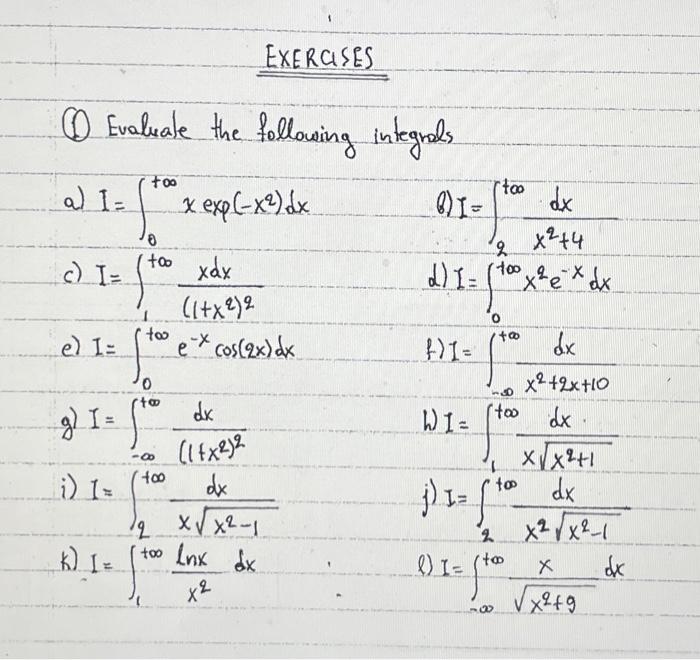 EXERCISES
① Evaluate the following integrals
a) I = ∫₀^{+∞} x exp(-x²)dx b) I = ∫₂^{+∞} dx/(x²+4)
c) I = ∫₁^{+∞} xdx/(1+x²)² d) I = ∫₀^{+∞} x²e^{-x} dx
e) I = ∫₀^{+∞} e^{-x} cos(2x)dx f) I = ∫_{-∞}^{+∞} dx/(x²+2x+10)
g) I = ∫_{-∞}^{+∞} dx/(1+x²)² h) I = ∫₁^{+∞} dx/(x√(x²+1))
i) I = ∫₂^{+∞} dx/(x√(x²-1)) j) I = ∫₂^{+∞} dx/(x²√(x²-1))
k) I = ∫₁^{+∞} lnx/x² dx l) I = ∫_{-∞}^{+∞} x/√(x²+9) dx